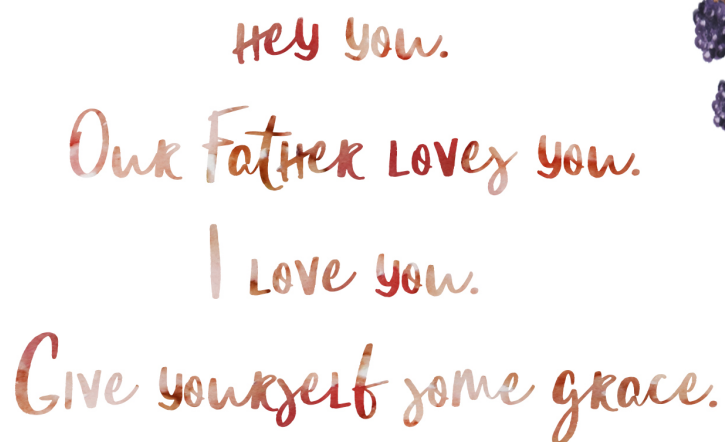 Hey you.
Our Father loves you.
I love you.
Give yourself some grace.